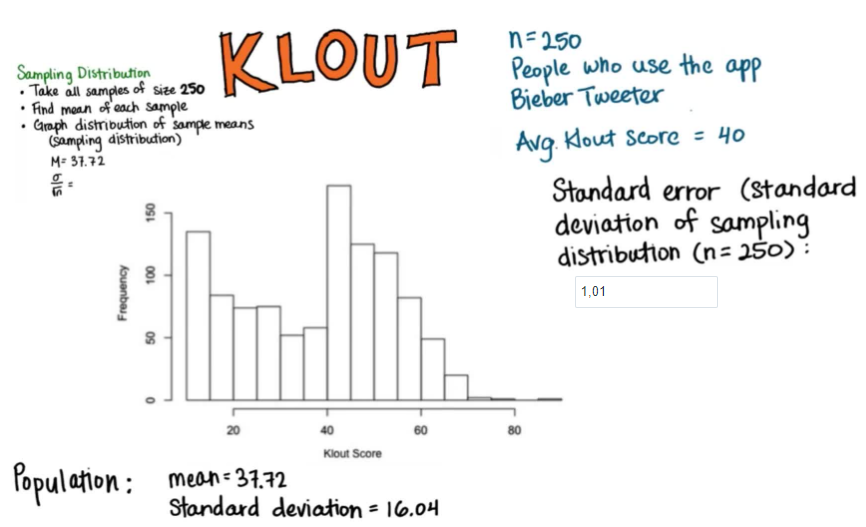 KLOUT
Sampling Distribution
• Take all samples of size 250
• Find mean of each sample
• Graph distribution of sample means
(sampling distribution)
M = 37.72
σ/√n =
n = 250
People who use the app
Bieber Tweeter
Avg. Klout score = 40
Standard error (standard
deviation of sampling
distribution (n = 250) :
1,01
Frequency
150
100
50
0
20 40 60 80
Klout Score
Population: mean = 37.72
Standard deviation = 16.04